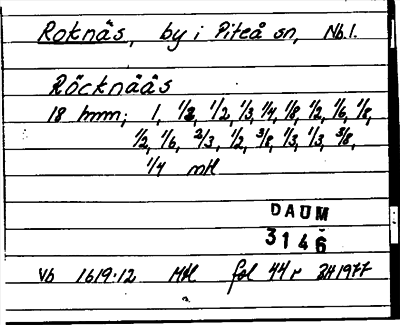 Roknäs, by i Piteå sn, Nb.l.
Röcknääs
18 hmn; 1, 1/2, 1/2, 1/3, 1/4, 1/8, 1/2, 1/6, 1/8,
1/2, 1/6, 2/3, 1/2, 3/8, 1/3, 1/3, 3/8,
1/4 mtl
DAUM
3146
Vb 1619:12 Mtl fol 44 r 241977